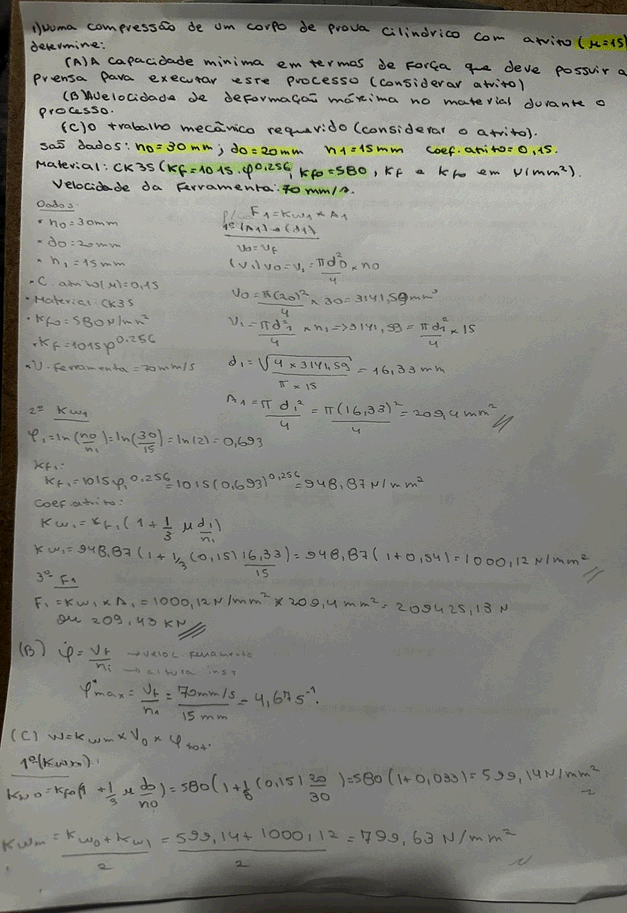 1) Numa compressão de um corpo de prova cilíndrico com atrito (μ=15)
determine:
(A) A capacidade mínima em termos de força que deve possuir a
prensa para executar este processo (considerar atrito)
(B) Velocidade de deformação máxima no material durante o
processo.
(C) O trabalho mecânico requerido (considerar o atrito).
São dados: h0=30mm; d0=20mm h1=15mm coef.atrito=0,15.
Material: CK35 (Kf=1015.φ^0,256, Kf0=580, Kf e Kf0 em N/mm²).
Velocidade da ferramenta: 70 mm/s.
Dados:
• h0=30mm
• d0=20mm
• h1=15mm
• C. atrito(μ)=0,15
• Material: CK35
• Kf0=580N/mm²
• Kf=1015φ^0,256
• V. ferramenta=70mm/s
F1=Kw1×A1
1º(A1)
V0=Vf
(V1)V0=V1=πd0²/4×h0
V0=π(20)²/4×30=3141,59mm³
V1=πd1²/4×h1=>3141,59=πd1²/4×15
d1=√(4×3141,59/π×15)=16,33mm
A1=πd1²/4=π(16,33)²/4=209,4mm²
2º Kw1
φ1=ln(h0/h1)=ln(30/15)=ln(2)=0,693
Kf1:
Kf1=1015φ1^0,256=1015(0,693)^0,256=948,87N/mm²
Coef.atrito:
Kw1=Kf1(1+1/3 μ d1/h1)
Kw1=948,87(1+1/3(0,15)16,33/15)=948,87(1+0,54)=1000,12N/mm²
3º F1
F1=Kw1×A1=1000,12N/mm²×209,4mm²=209425,13N
ou 209,43KN
(B) φ̇=Vf/hi →veloc. ferramenta
→altura inst
φ̇max=Vf/h1=70mm/s/15mm=4,67s⁻¹.
(C) W=Kwm×V0×φtot.
1º(Kwm):
Kw0=Kf0(1+1/3 μ d0/h0)=580(1+1/3(0,15)20/30)=580(1+0,033)=599,14N/mm²
Kwm=Kw0+Kw1/2=599,14+1000,12/2=799,63N/mm²